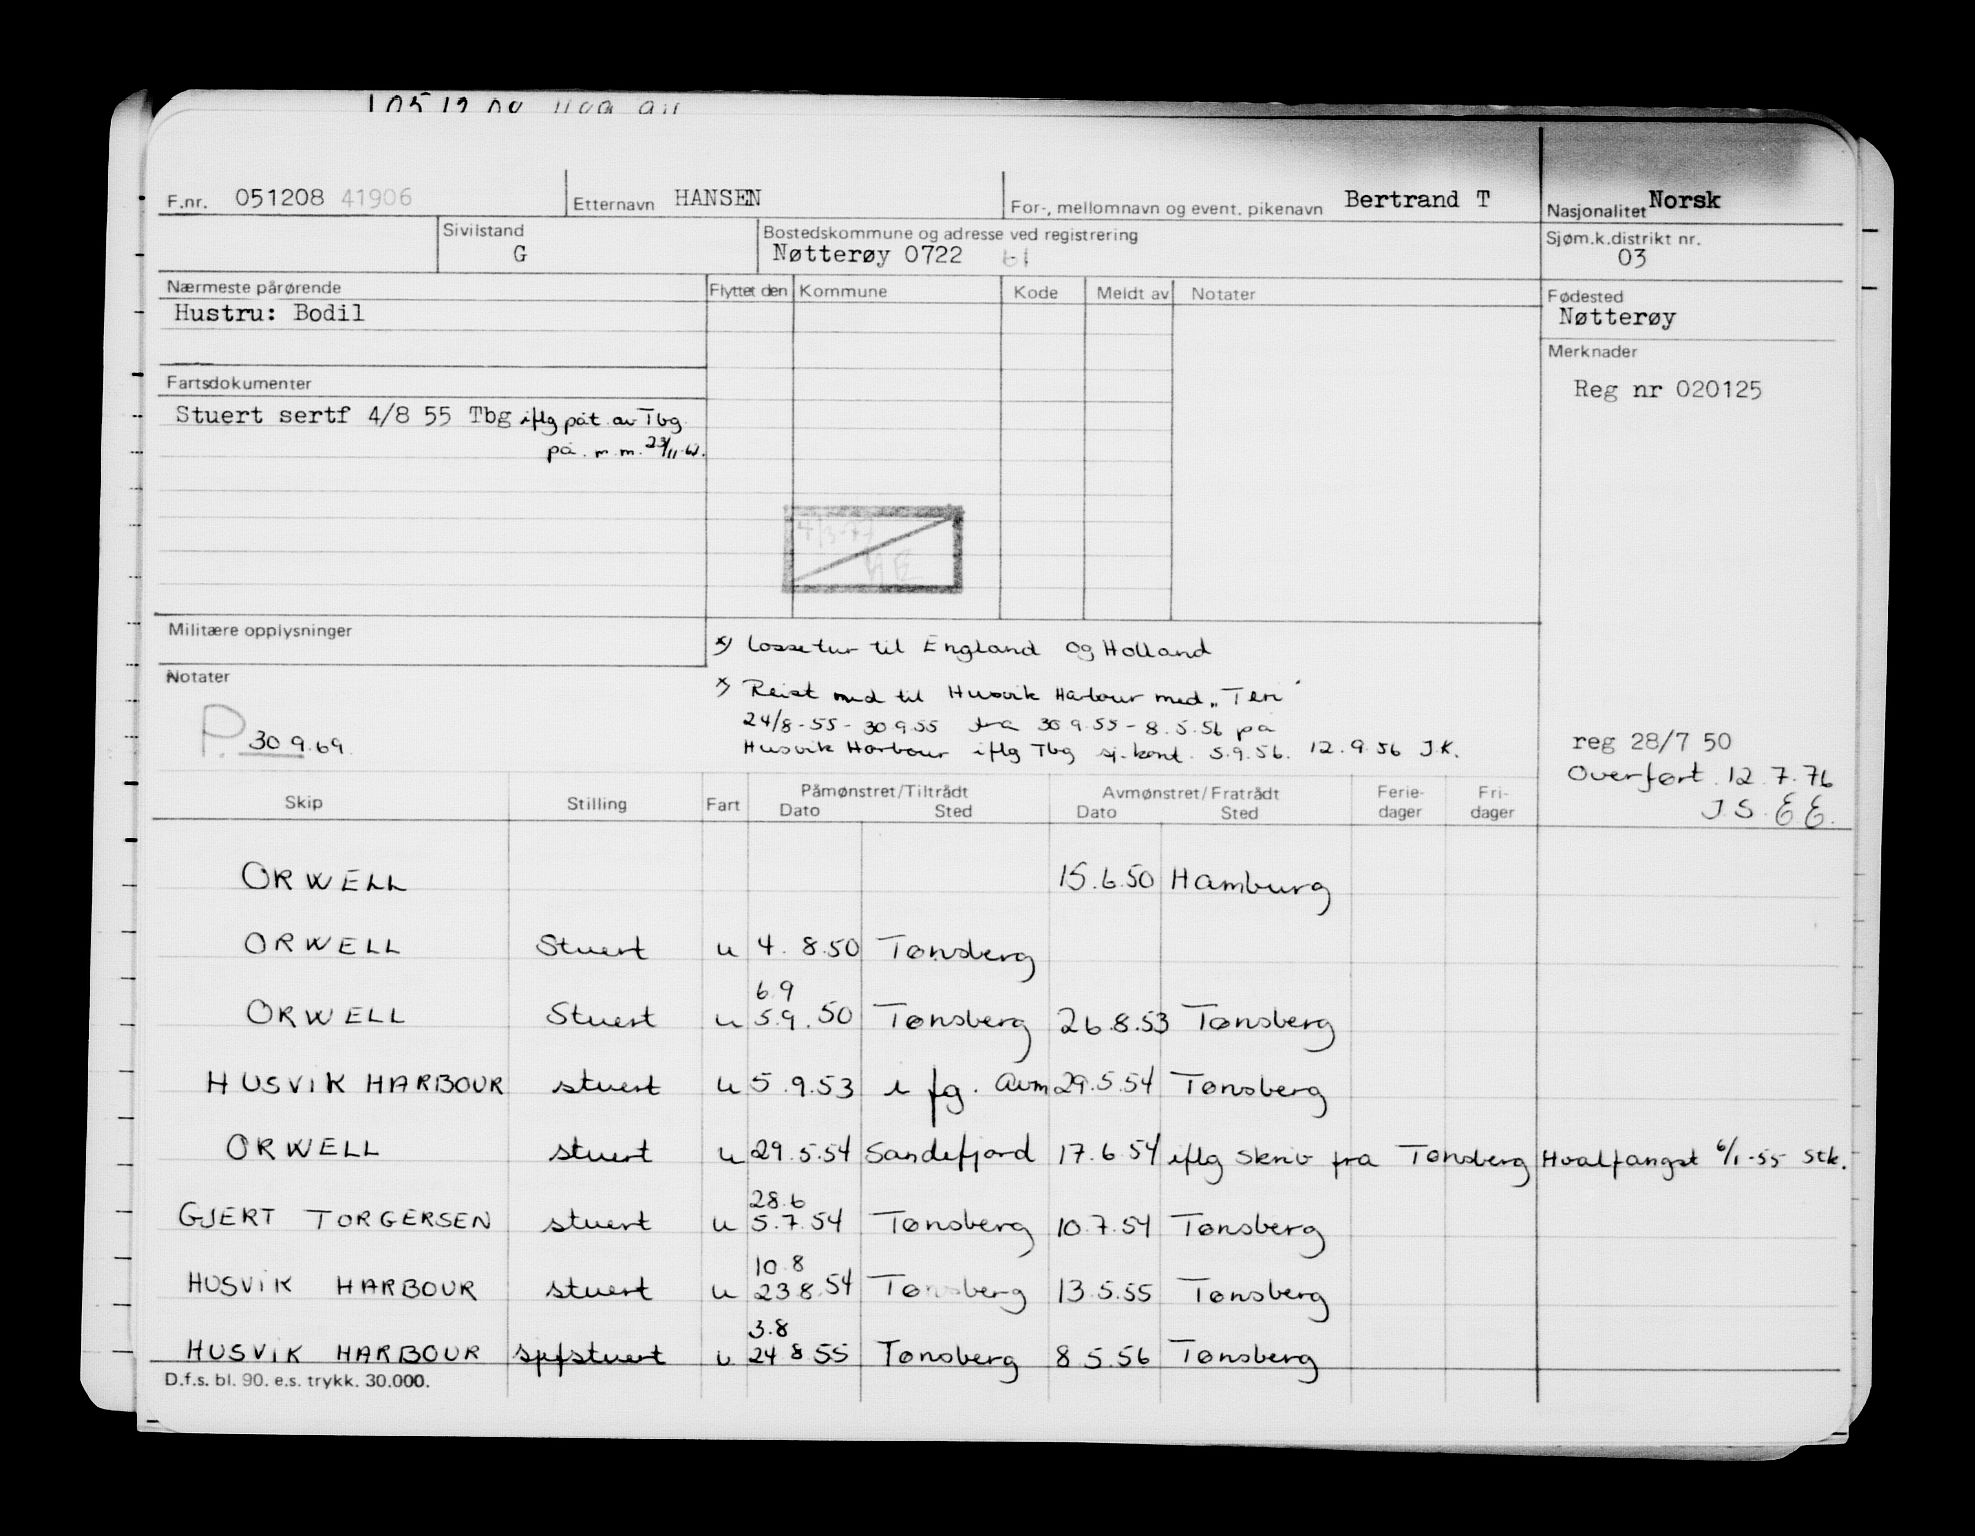 F.nr. 051208 41906 Etternavn HANSEN For-, mellomnavn og event. pikenavn Bertrand T Nasjonalitet Norsk
Sivilstand G Bostedskommune og adresse ved registrering Sjøm.k.distrikt nr.
Nøtterøy 0722 61 03
Nærmeste pårørende Flyttet den Kommune Kode Meldt av Notater Fødested
Hustru: Bodil Nøtterøy
Merknader
Fartsdokumenter Reg nr 020125
Stuert sertf 4/8 55 Tbg iflg påt av Tbg
på m.m. 23/11-61.
4/3-77
Militære opplysninger
x) Lossetur til England og Holland
Notater
x) Reist med til Husvik Harbour med "Teri"
24/8-55 - 30.9.55 fra 30.9.55 - 8.5.56 på
P. 30 9.69.
Husvik Harbour iflg Tbg sj.kont. 5.9.56. 12.9.56 J.K.
reg 28/7 50
Overført 12.7.76
J.S. E.E.
Skip Stilling Fart Påmønstret/Tiltrådt Dato Sted Avmønstret/Fratrådt Dato Sted Ferie-dager Fri-dager
ORWELL 15.6.50 Hamburg
ORWELL Stuert u 4. 8.50 Tønsberg
6.9
ORWELL Stuert u 5.9.50 Tønsberg 26.8.53 Tønsberg
HUSVIK HARBOUR stuert u 5.9.53 i fg. Avm 29.5.54 Tønsberg
ORWELL stuert u 29.5.54 Sandefjord 17.6.54 iflg skriv fra Tønsberg Hvalfangst 6/1-55 Stk.
28.6
GJERT TORGERSEN stuert u 5.7.54 Tønsberg 10.7.54 Tønsberg
10.8
HUSVIK HARBOUR stuert u 23.8.54 Tønsberg 13.5.55 Tønsberg
3.8
HUSVIK HARBOUR spfstuert u 24 8 55 Tønsberg 8 5.56 Tønsberg
D.f.s. bl. 90. e.s. trykk. 30.000.